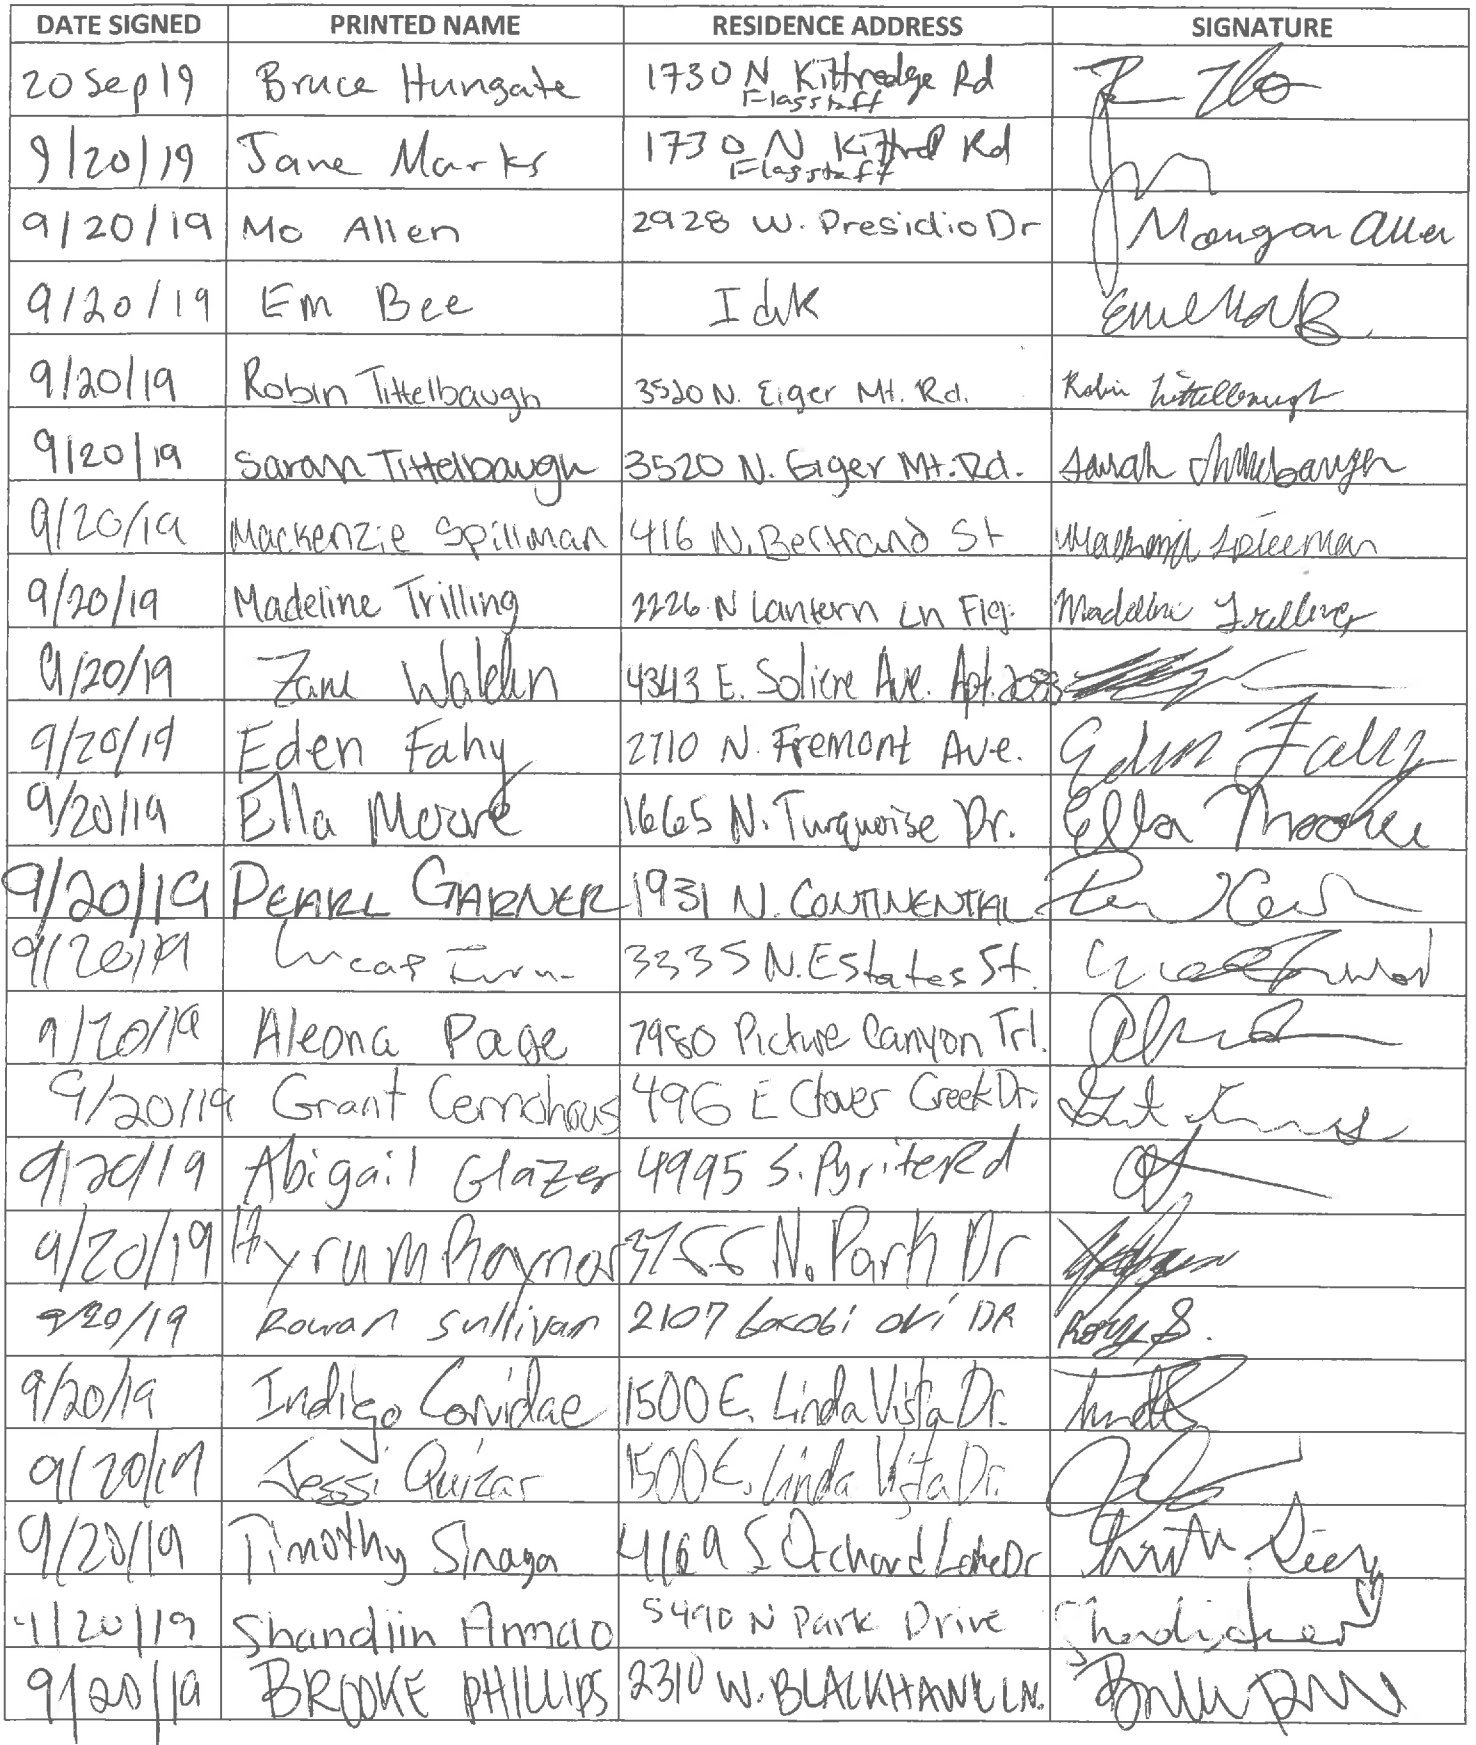 DATE SIGNED PRINTED NAME RESIDENCE ADDRESS SIGNATURE
20 Sep 19 Bruce Hungate 1730 N Kittredge Rd
Flagstaff
9/20/19 Jane Marks 1730 N Kittred Rd
Flagstaff
9/20/19 Mo Allen 2928 W. Presidio Dr Morgan Allen
9/20/19 Em Bee Idk
9/20/19 Robin Tittelbaugh 3520 N. Eiger Mt. Rd. Robin Tittelbaugh
9/20/19 Sarah Tittelbaugh 3520 N. Eiger Mt. Rd. Sarah Tittelbaugh
9/20/19 Mackenzie Spillman 416 N. Bertrand St Mackenzie Spillman
9/20/19 Madeline Trilling 2226 N Lantern Ln Flg. Madeline Trilling
9/20/19 Zane 4343 E. Soliere Ave. Apt. 2083
9/20/19 Eden Fahy 2710 N. Fremont Ave. Eden Fahy
9/20/19 Ella Moore 1665 N. Turquoise Dr. Ella Moore
9/20/19 PEARL GARNER 1931 N. CONTINENTAL
9/20/19 Lucas 3335 N. Estates St.
9/20/19 Aleona Page 7980 Picture Canyon Trl.
9/20/19 Grant Cernohous 496 E Clover Creek Dr.
9/20/19 Abigail Glazer 4995 S. Pyrite Rd
9/20/19 Hyrum Raynor 3755 N. Park Dr
9/20/19 Rowan Sullivan 2107 DR Rory S.
9/20/19 Indigo Corvidae 1500 E. Linda Vista Dr.
9/20/19 Jessi Quizar 1500 E. Linda Vista Dr.
9/20/19 Timothy Sinaga 4169 S Orchard Lake Dr
9/20/19 Shandiin Armao 5490 N Park Drive
9/20/19 BROOKE PHILLIPS 2310 W. BLACKHAWK LN.